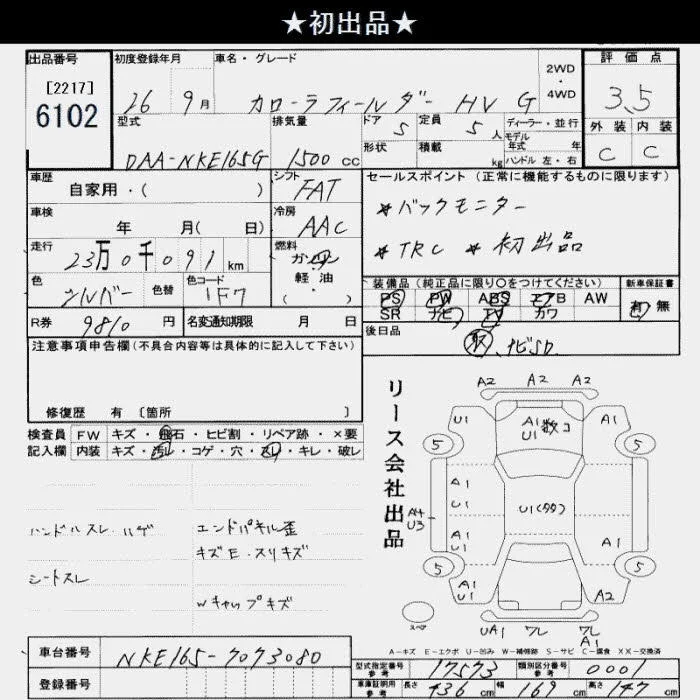 ★初出品★
出品番号 初度登録年月 車名・グレード 2WD・4WD 評価点
[2217]
6102
26 9月 カローラフィールダー HV G 3.5
型式 排気量 ドア 5 定員 5人 ディーラー・並行 外装 内装
モデル年式 年
DAA-NKE165G 1500cc 形状 積載 kg ハンドル 左・右 C C
車歴 シフト セールスポイント (正常に機能するものに限ります)
自家用・( ) FAT
車検 冷房 ＊バックモニター
年 月( 日) AAC ＊TRC ＊初出品
走行 燃料
23万0千091km ガソリン
軽油
・( )
色 色替 色コード 装備品 (純正品に限り○をつけてください) 新車保証書
シルバー 1F7 PS PW ABS エアB AW 有 無
SR ナビ TV カワ
R券 9810円 名変通知期限 月 日 後日品
取 ナビSD
注意事項申告欄(不具合内容等は具体的に記入して下さい)
修復歴 有 [箇所 ]
リース会社出品
検査員 FW キズ・飛石・ヒビ割・リペア跡・×要
記入欄 内装 キズ・汚レ・コゲ・穴・スレ・キレ・破レ
ハンドルスレ・ハゲ エンドパネル歪
キズE・スリキズ
シートスレ
Wキャップキズ
A2 A2 A2
U1 A1 U1 数コ A1
5 5
A1
A4 U3 A1 U1 U1(多) A1
5 5
A1 U1 A1 A2
スペア UA1 ワレ ワレ A1
A-キズ E-エクボ U-凹み W-補修跡 S-サビ C-腐食 XX-交換済
車台番号 NKE165-7073080
登録番号
型式指定番号 参考 17573 類別区分番号 参考 0001
車庫証明用 参考 長さ 436cm 幅 169cm 高さ 147cm